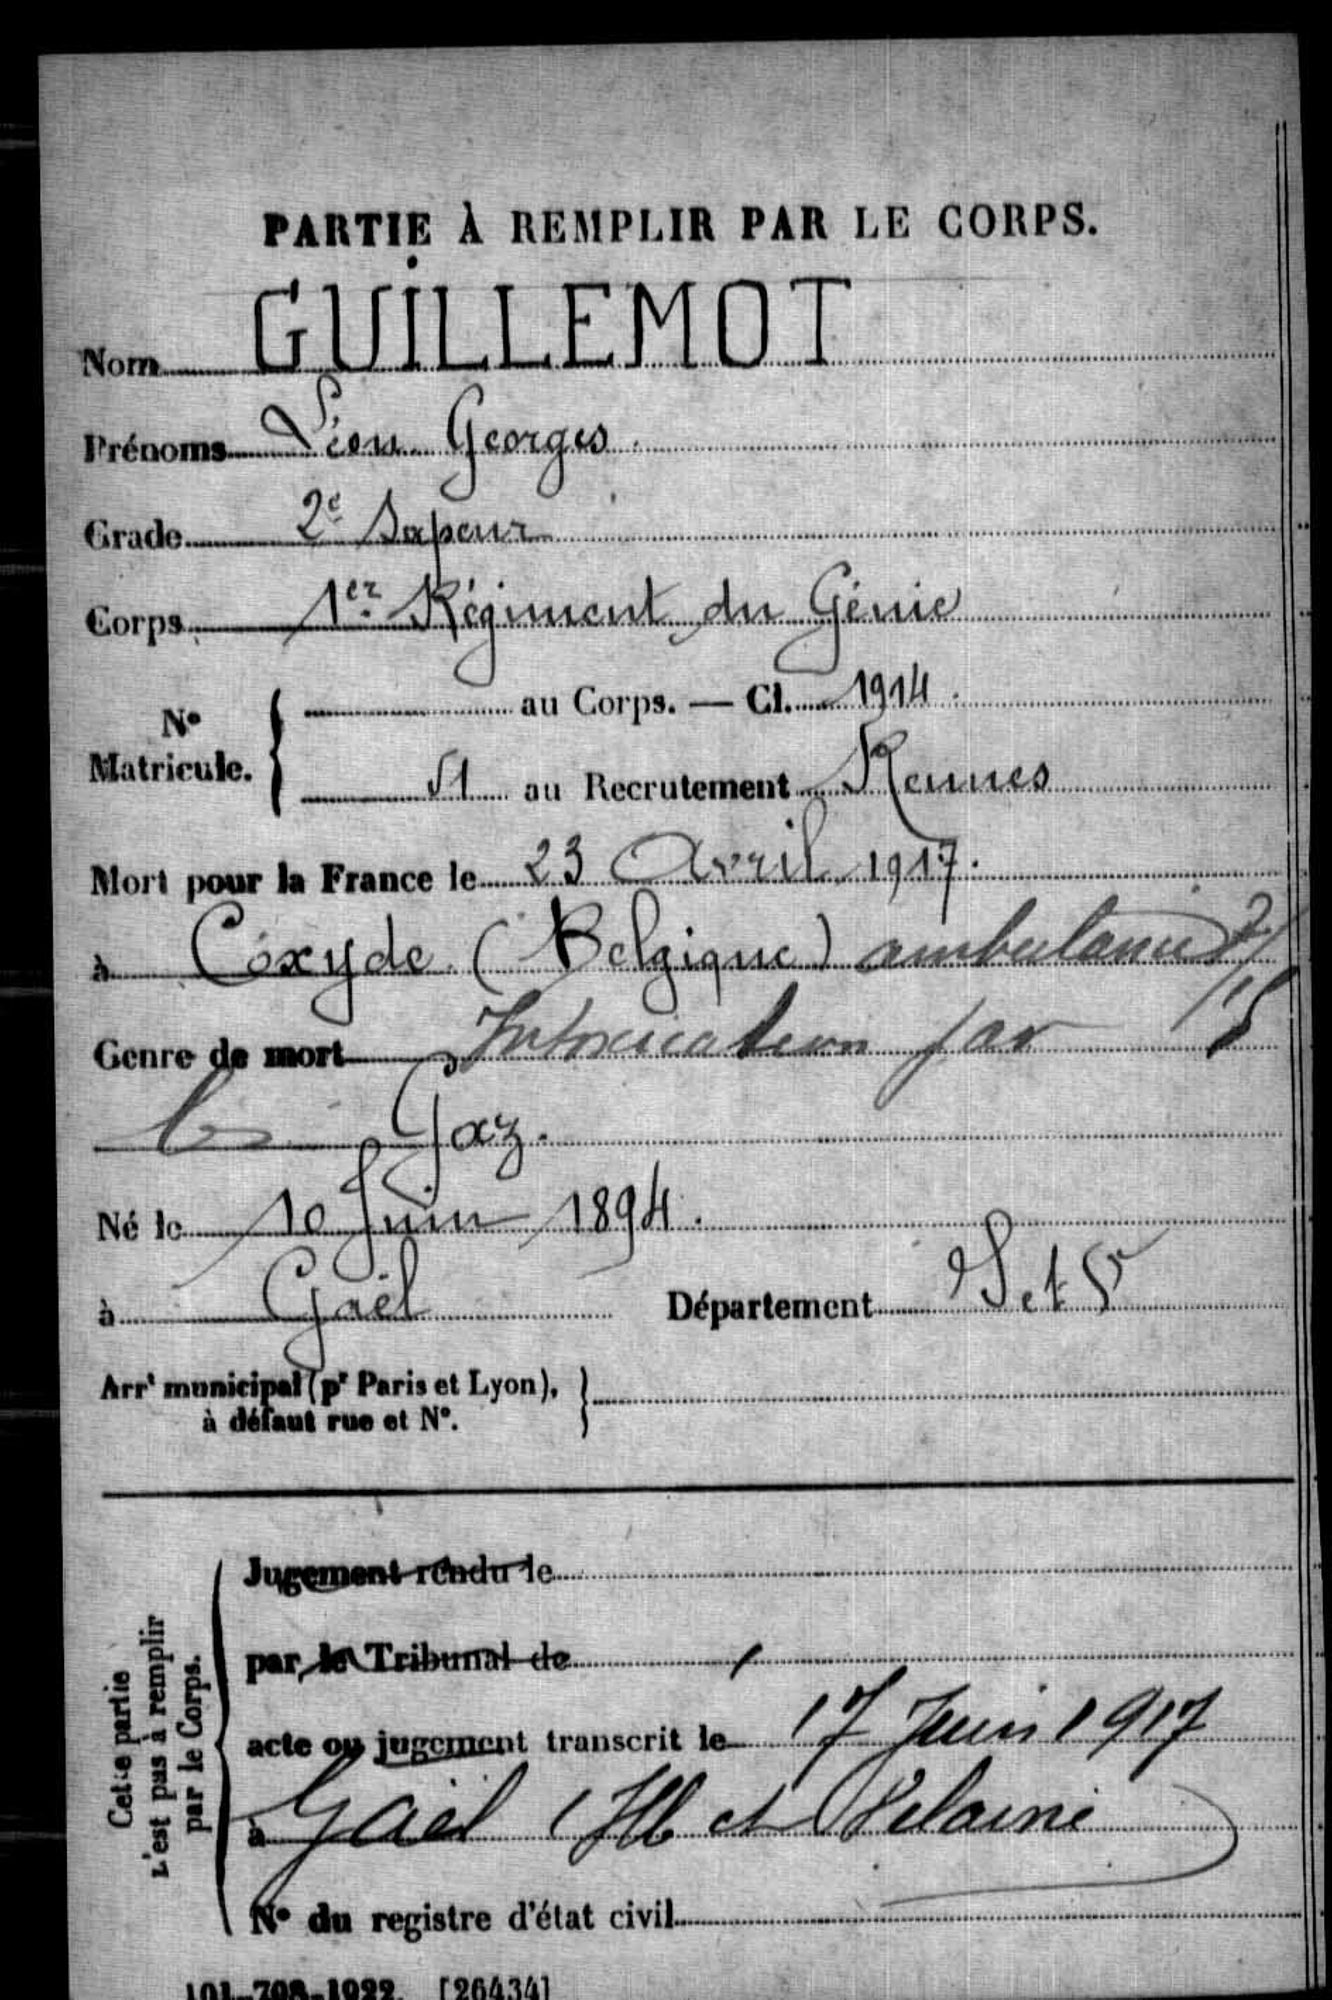 PARTIE À REMPLIR PAR LE CORPS.
Nom GUILLEMOT
Prénoms Léon Georges
Grade 2e Sapeur
Corps 1er Régiment du Génie
No Matricule. { au Corps. — Cl. 1914.
51 au Recrutement Rennes
Mort pour la France le 23 Avril 1917.
à Coxyde (Belgique) ambulance
Genre de mort Intoxication par
les Gaz.
Né le 10 Juin 1894.
à Gaël Département I et V
Arrt municipal (pr Paris et Lyon), }
à défaut rue et No.
Cette partie
n'est pas à remplir
par le Corps.
Jugement rendu le
par le Tribunal de
acte ou jugement transcrit le 17 Juin 1917
à Gaël (Ill et Vilaine)
No du registre d'état civil
101-708-1922. [26434]